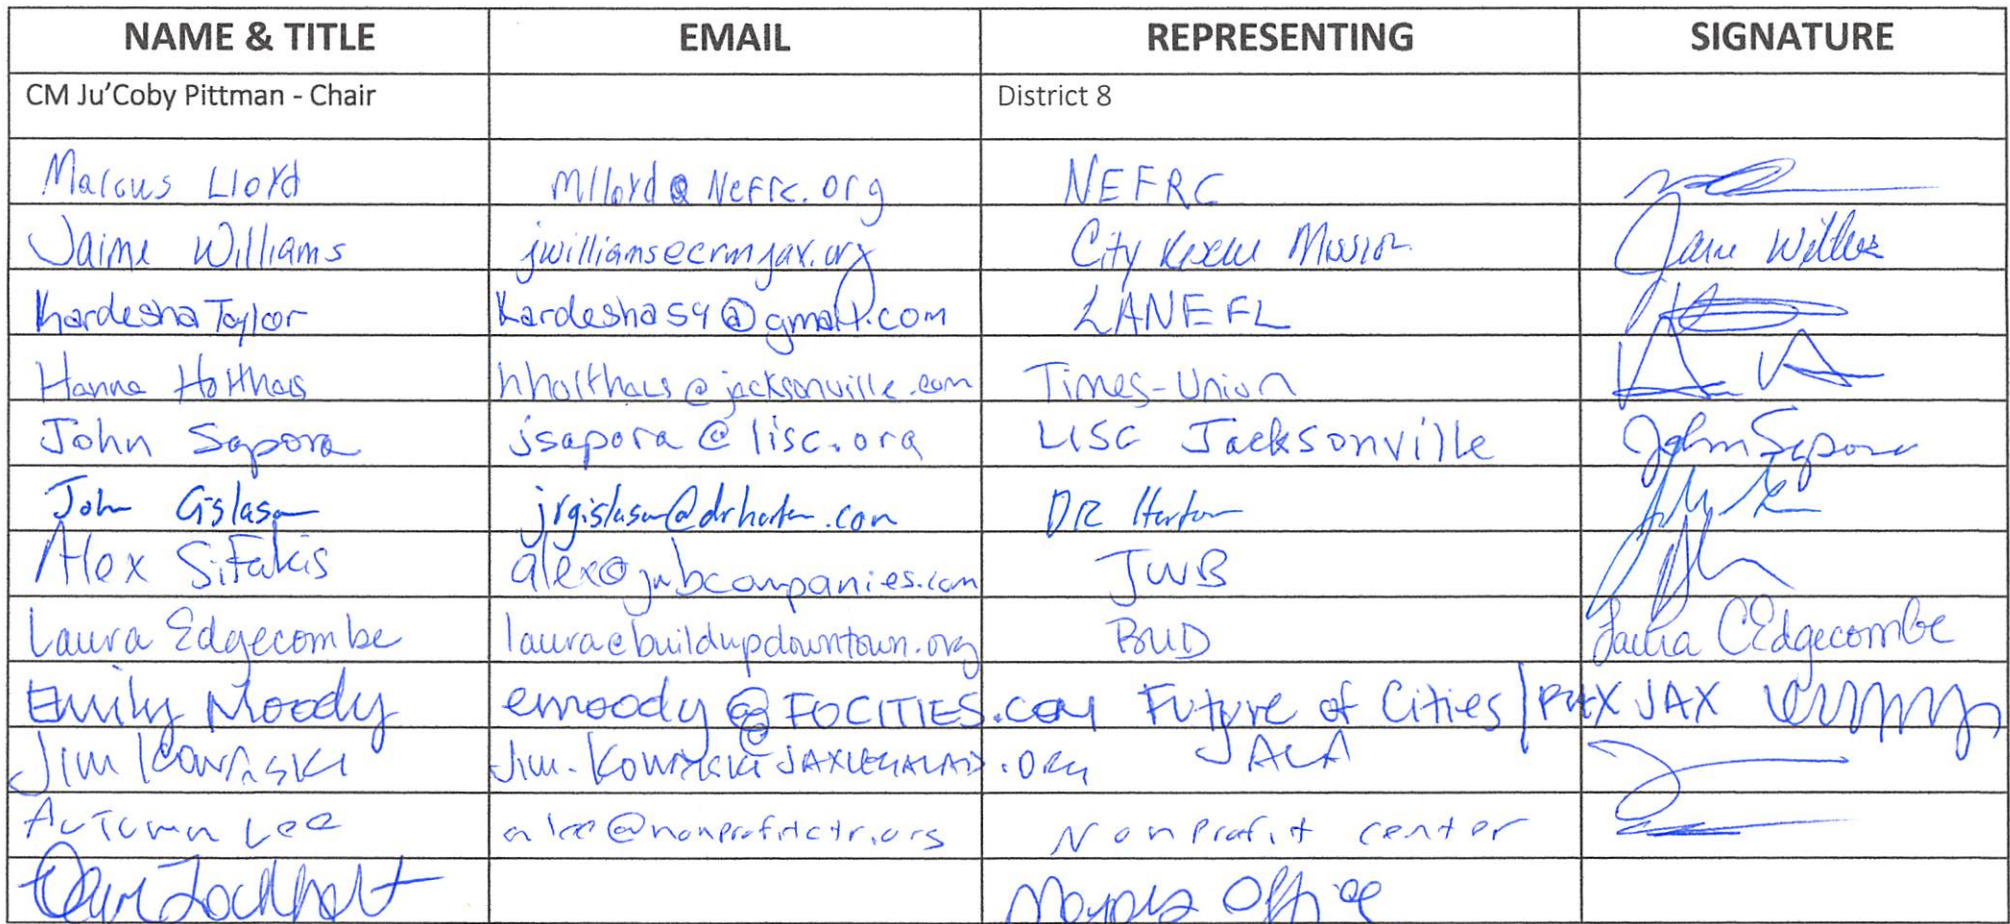 NAME & TITLE EMAIL REPRESENTING SIGNATURE
CM Ju'Coby Pittman - Chair District 8
Marcus Lloyd mlloyd@Nefrc.org NEFRC
Jaime Williams jwilliams@crmjax.org City Mission Jaime Williams
Kardesha Taylor Kardesha59@gmail.com LANEFL
Hanna Holthaus hholthaus@jacksonville.com Times-Union
John Sapora jsapora@lisc.org LISC Jacksonville John Sapora
John Gislason jrgislason@drhorton.com DR Horton
Alex Sifakis alex@jwbcompanies.com JWB
Laura Edgecombe laura@buildupdowntown.org BUD Laura C Edgecombe
Emily Moody emoody@FOCITIES.COM Future of Cities | PHX JAX
Jim Kowalski Jim.Kowalski@JAXLEGALAID.ORG JALA
Autumn Lee alee@nonprofitctr.org Nonprofit center
Lockhart Mayors Office